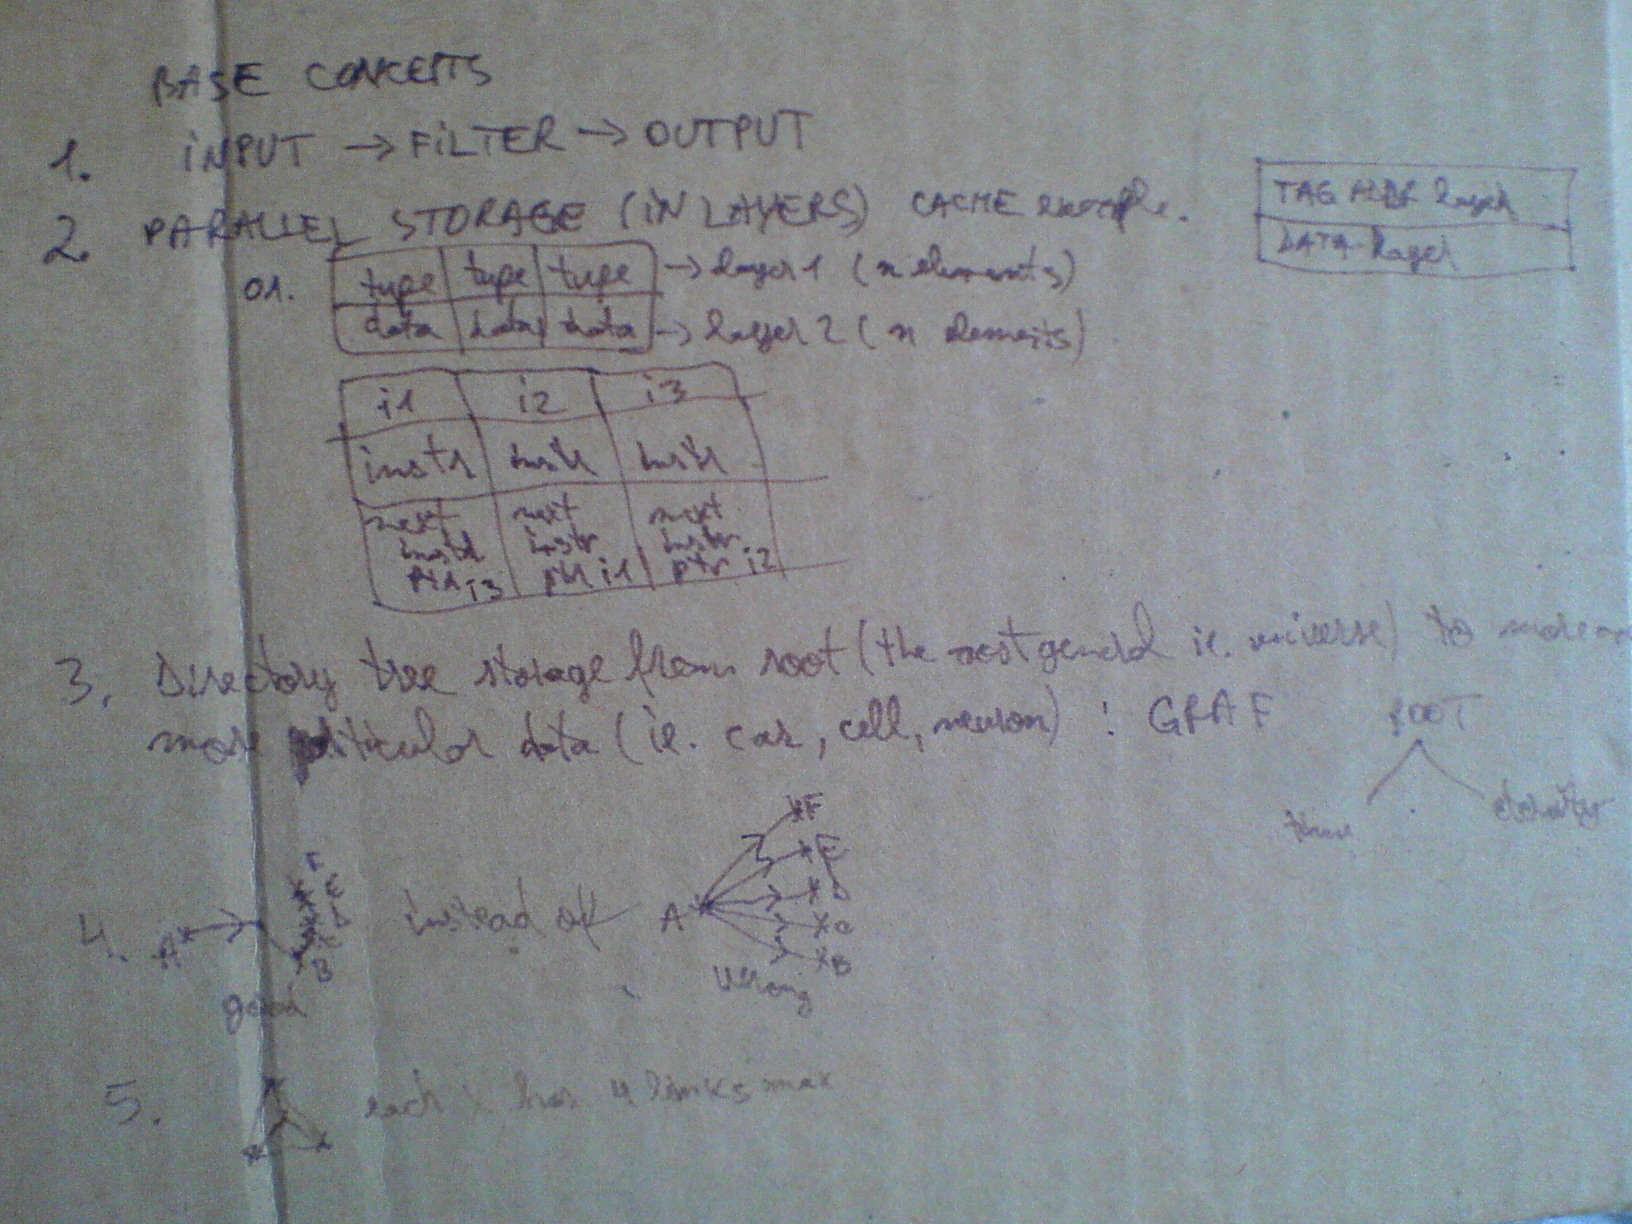 BASE CONCEPTS
1. INPUT → FILTER → OUTPUT
2. PARALLEL STORAGE (IN LAYERS) CACHE example.
TAG ADDR layer
DATA-layer
01. type type type → layer 1 (n elements)
data data data → layer 2 (n elements)
i1 i2 i3
instr instr instr
next next next
instr instr instr
ptr i3 ptr i1 ptr i2
3. Directory tree storage from root (the most general ie. universe) to more
more particular data (ie. car, cell, neuron) : GRAF
ROOT
time
4. A F E D C B instead of A F E D C B
good wrong
5. each x has 4 links max